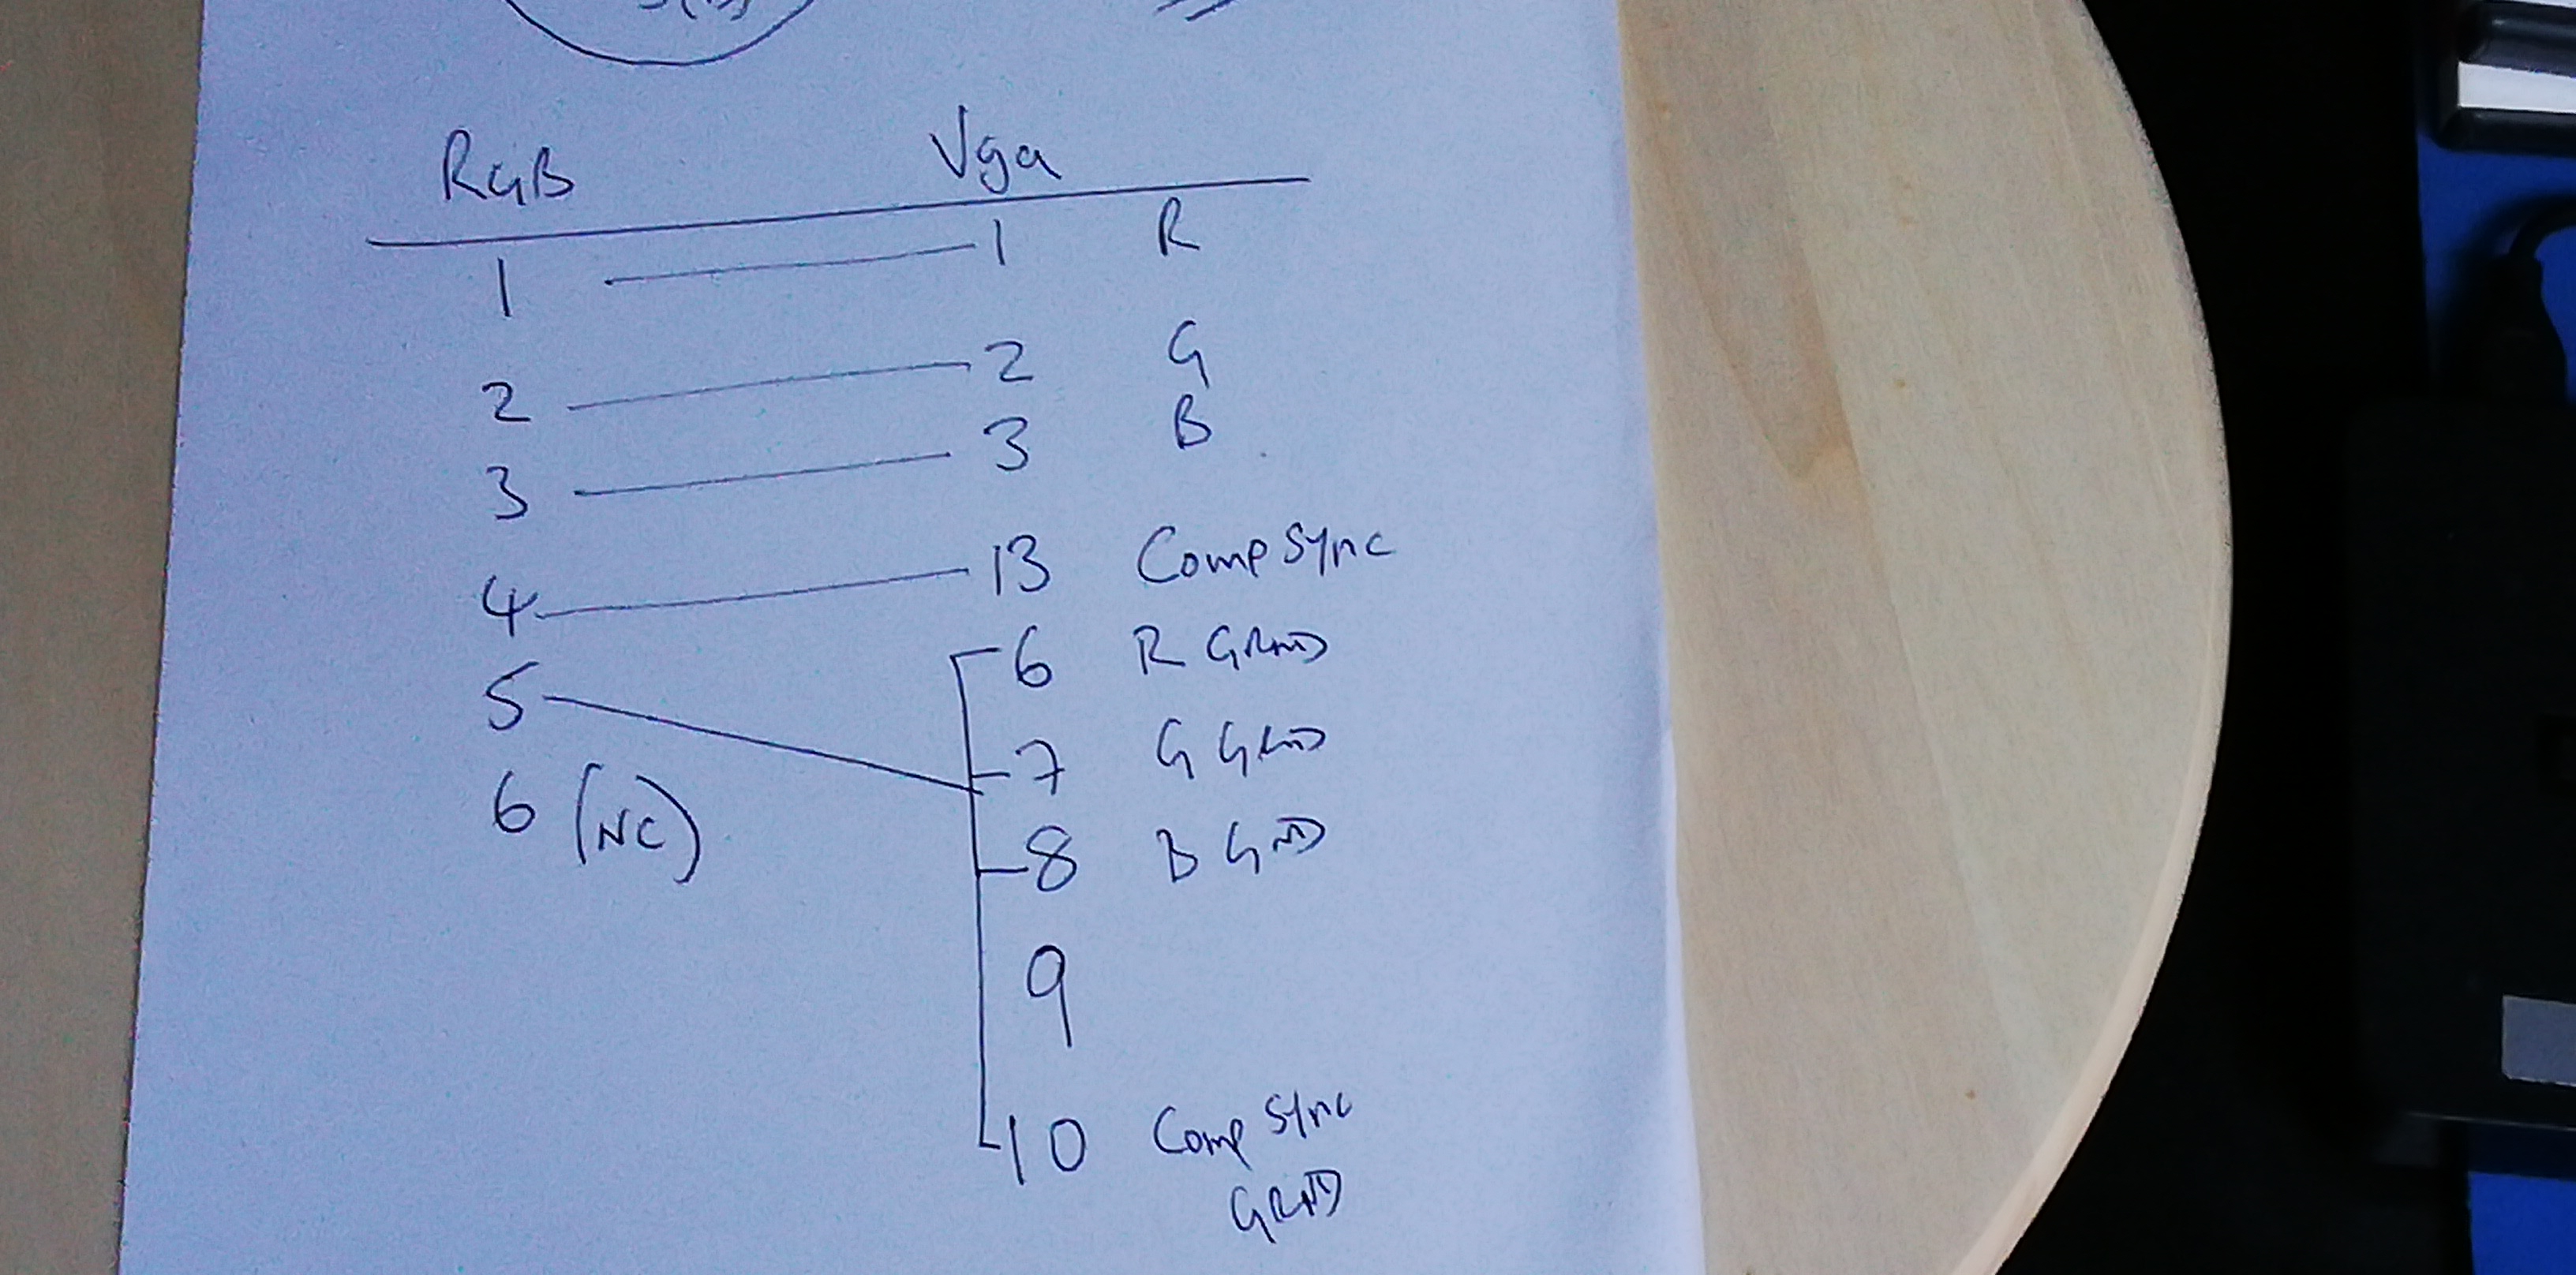 RGB Vga
1 1 R
2 2 G
3 3 B
4 13 Comp Sync
5 6 R GRND
7 G GRND
6 (NC) 8 B GND
9
10 Comp Sync
GRND